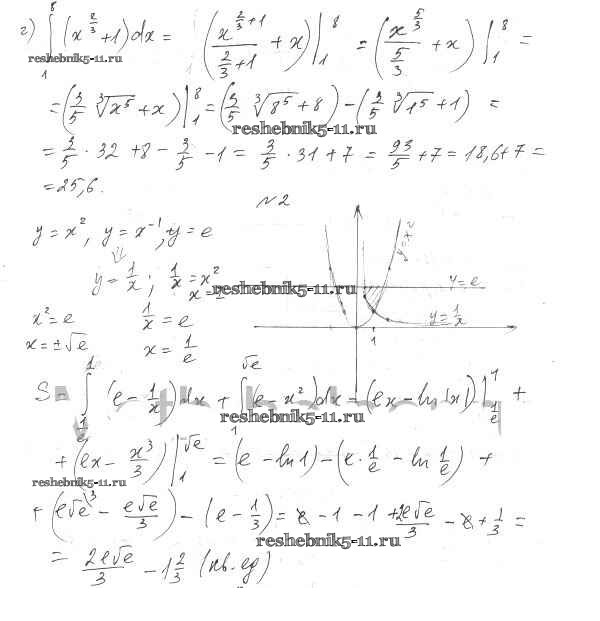 г) ∫₁⁸ (x^(2/3) + 1) dx = (x^(2/3 + 1) / (2/3 + 1) + x) |₁⁸ = (x^(5/3) / (5/3) + x) |₁⁸ =
reshebnik5-11.ru
= (3/5 ∛x⁵ + x) |₁⁸ = (3/5 ∛8⁵ + 8) − (3/5 ∛1⁵ + 1) =
reshebnik5-11.ru
= 3/5 · 32 + 8 − 3/5 − 1 = 3/5 · 31 + 7 = 93/5 + 7 = 18,6 + 7 =
= 25,6.
№2
y = x², y = x⁻¹, y = e
y = 1/x ; 1/x = x²
reshebnik5-11.ru
x² = e 1/x = e
x = ±√e x = 1/e
y = x²
y = e
y = 1/x
1
S = ∫_(1/e)^1 (e − 1/x) dx + ∫₁^(√e) (e − x²) dx = (ex − ln|x|) |_(1/e)^1 +
reshebnik5-11.ru
+ (ex − x³/3) |₁^(√e) = (e − ln 1) − (e · 1/e − ln 1/e) +
reshebnik5-11.ru
+ (e√e − e√e/3) − (e − 1/3) = e − 1 − 1 + 2e√e/3 − e + 1/3 =
reshebnik5-11.ru
= 2e√e/3 − 1 2/3 (кв. ед)